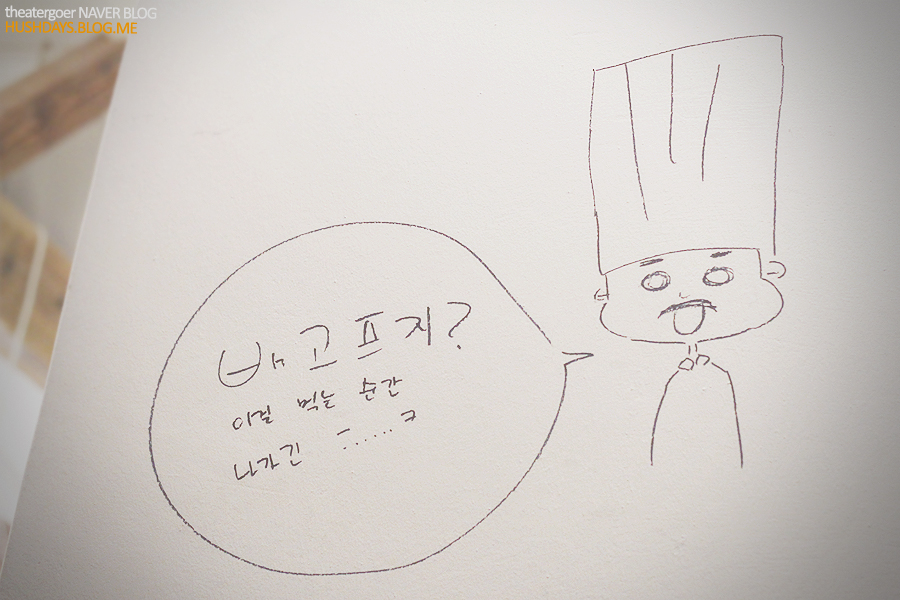 theatergoer NAVER BLOG
HUSHDAYS.BLOG.ME
배고프지?
이걸 먹는 순간
나가긴 ㅡ......ㅋ